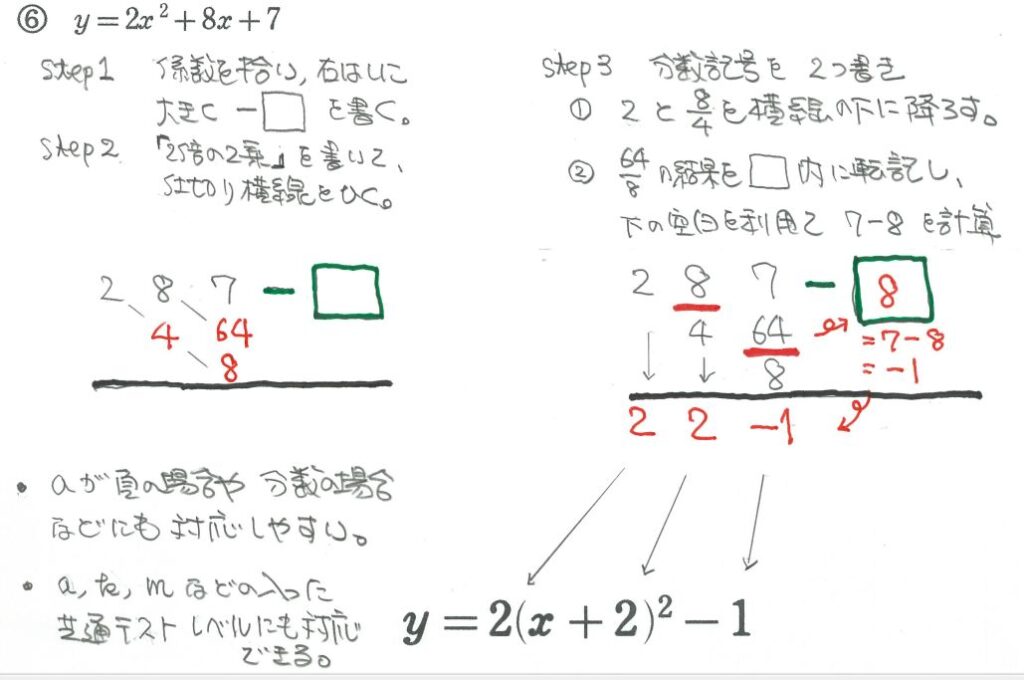 ⑥ y = 2x² + 8x + 7
Step1 係数を拾い, 右はしに
大きく −□ を書く。
Step2 「2倍の2乗」を書いて、
仕切り横線をひく。
2 8 7 − □
4 64
8
Step3 分数記号を 2つ書き
① 2 と 8/4 を横線の下に降ろす。
② 64/8 の結果を □ 内に転記し、
下の空白を利用て 7−8 を計算
2 8 7 − 8
4 64 = 7−8
8 = −1
2 2 −1
• aが負の場合や 分数の場合
などにも 対応しやすい。
• a, k, m などの入った
共通テストレベルにも対応
できる。
y = 2(x + 2)² − 1